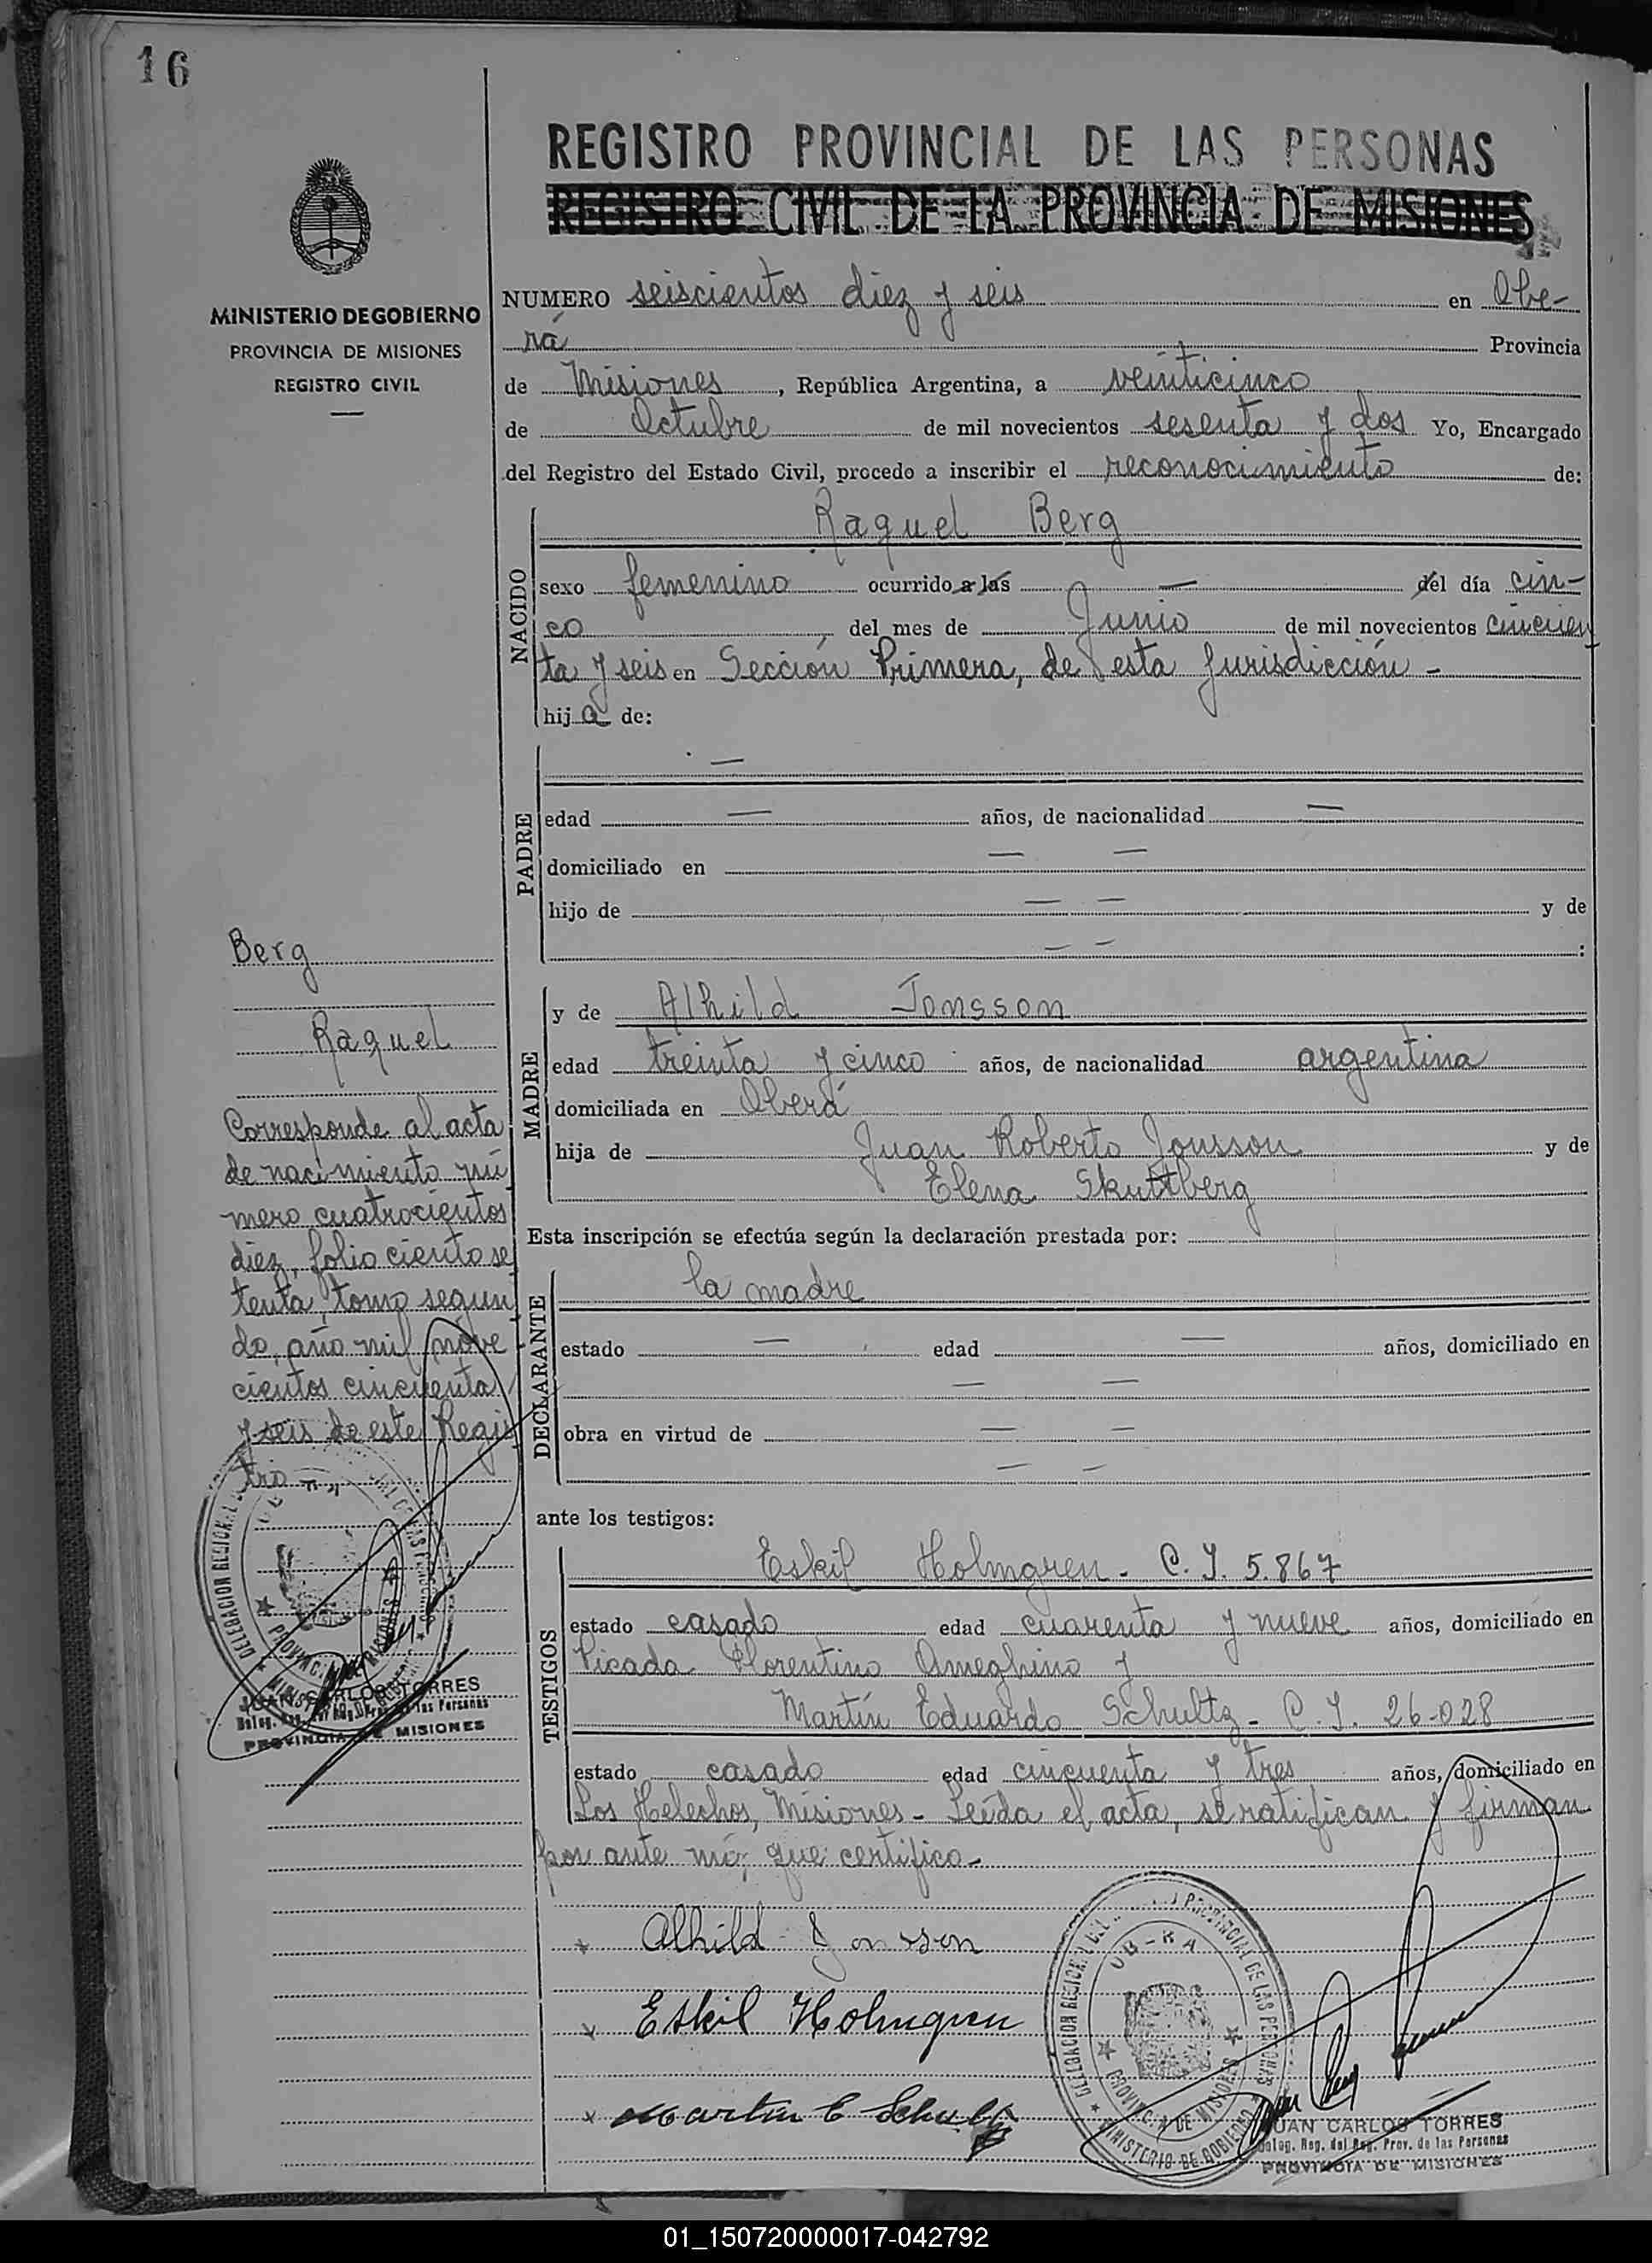 16
REGISTRO PROVINCIAL DE LAS PERSONAS
REGISTRO CIVIL DE LA PROVINCIA DE MISIONES
MINISTERIO DE GOBIERNO
PROVINCIA DE MISIONES
REGISTRO CIVIL
NUMERO seiscientos diez y seis en Obe-
rá Provincia
de Misiones, República Argentina, a veinticinco
de Octubre de mil novecientos sesenta y dos Yo, Encargado
del Registro del Estado Civil, procedo a inscribir el reconocimiento de:
NACIDO
Raquel Berg
sexo femenino ocurrido a las — del día cin-
co del mes de Junio de mil novecientos cincuen
ta y seis en Sección Primera, de esta Jurisdicción -
hija de:
PADRE
—
edad — años, de nacionalidad —
domiciliado en — —
hijo de — — y de
— — :
MADRE
y de Alhild Jonsson
edad treinta y cinco años, de nacionalidad argentina
domiciliada en Oberá
hija de Juan Roberto Jonsson y de
Elena Skuttberg
Esta inscripción se efectúa según la declaración prestada por:
DECLARANTE
la madre
estado — edad — años, domiciliado en
— —
obra en virtud de — —
— —
ante los testigos:
TESTIGOS
Eskil Holmgren - C. I. 5.867
estado casado edad cuarenta y nueve años, domiciliado en
Picada Florentino Ameghino y
Martín Eduardo Schultz - C. I. 26.028
estado casado edad cincuenta y tres años, domiciliado en
Los Helechos, Misiones - Leída el acta, se ratifican y firman
por ante mí, que certifico -
Berg
Raquel
Corresponde al acta
de nacimiento nú
mero cuatrocientos
diez, folio ciento se
tenta, tomo segun
do, año mil nove
cientos cincuenta
y seis de este Regis
tro
JUAN CARLOS TORRES
Deleg. Reg. del Reg. Prov. de las Personas
PROVINCIA DE MISIONES
x Alhild Jonsson
x Eskil Holmgren
x Martin E Schultz
DELEGACION REGIONAL DEL PROVINCIAL DE LAS PERSONAS
OBERA
PROVINCIA DE MISIONES
MINISTERIO DE GOBIERNO
JUAN CARLOS TORRES
Deleg. Reg. del Reg. Prov. de las Personas
PROVINCIA DE MISIONES
01_150720000017-042792